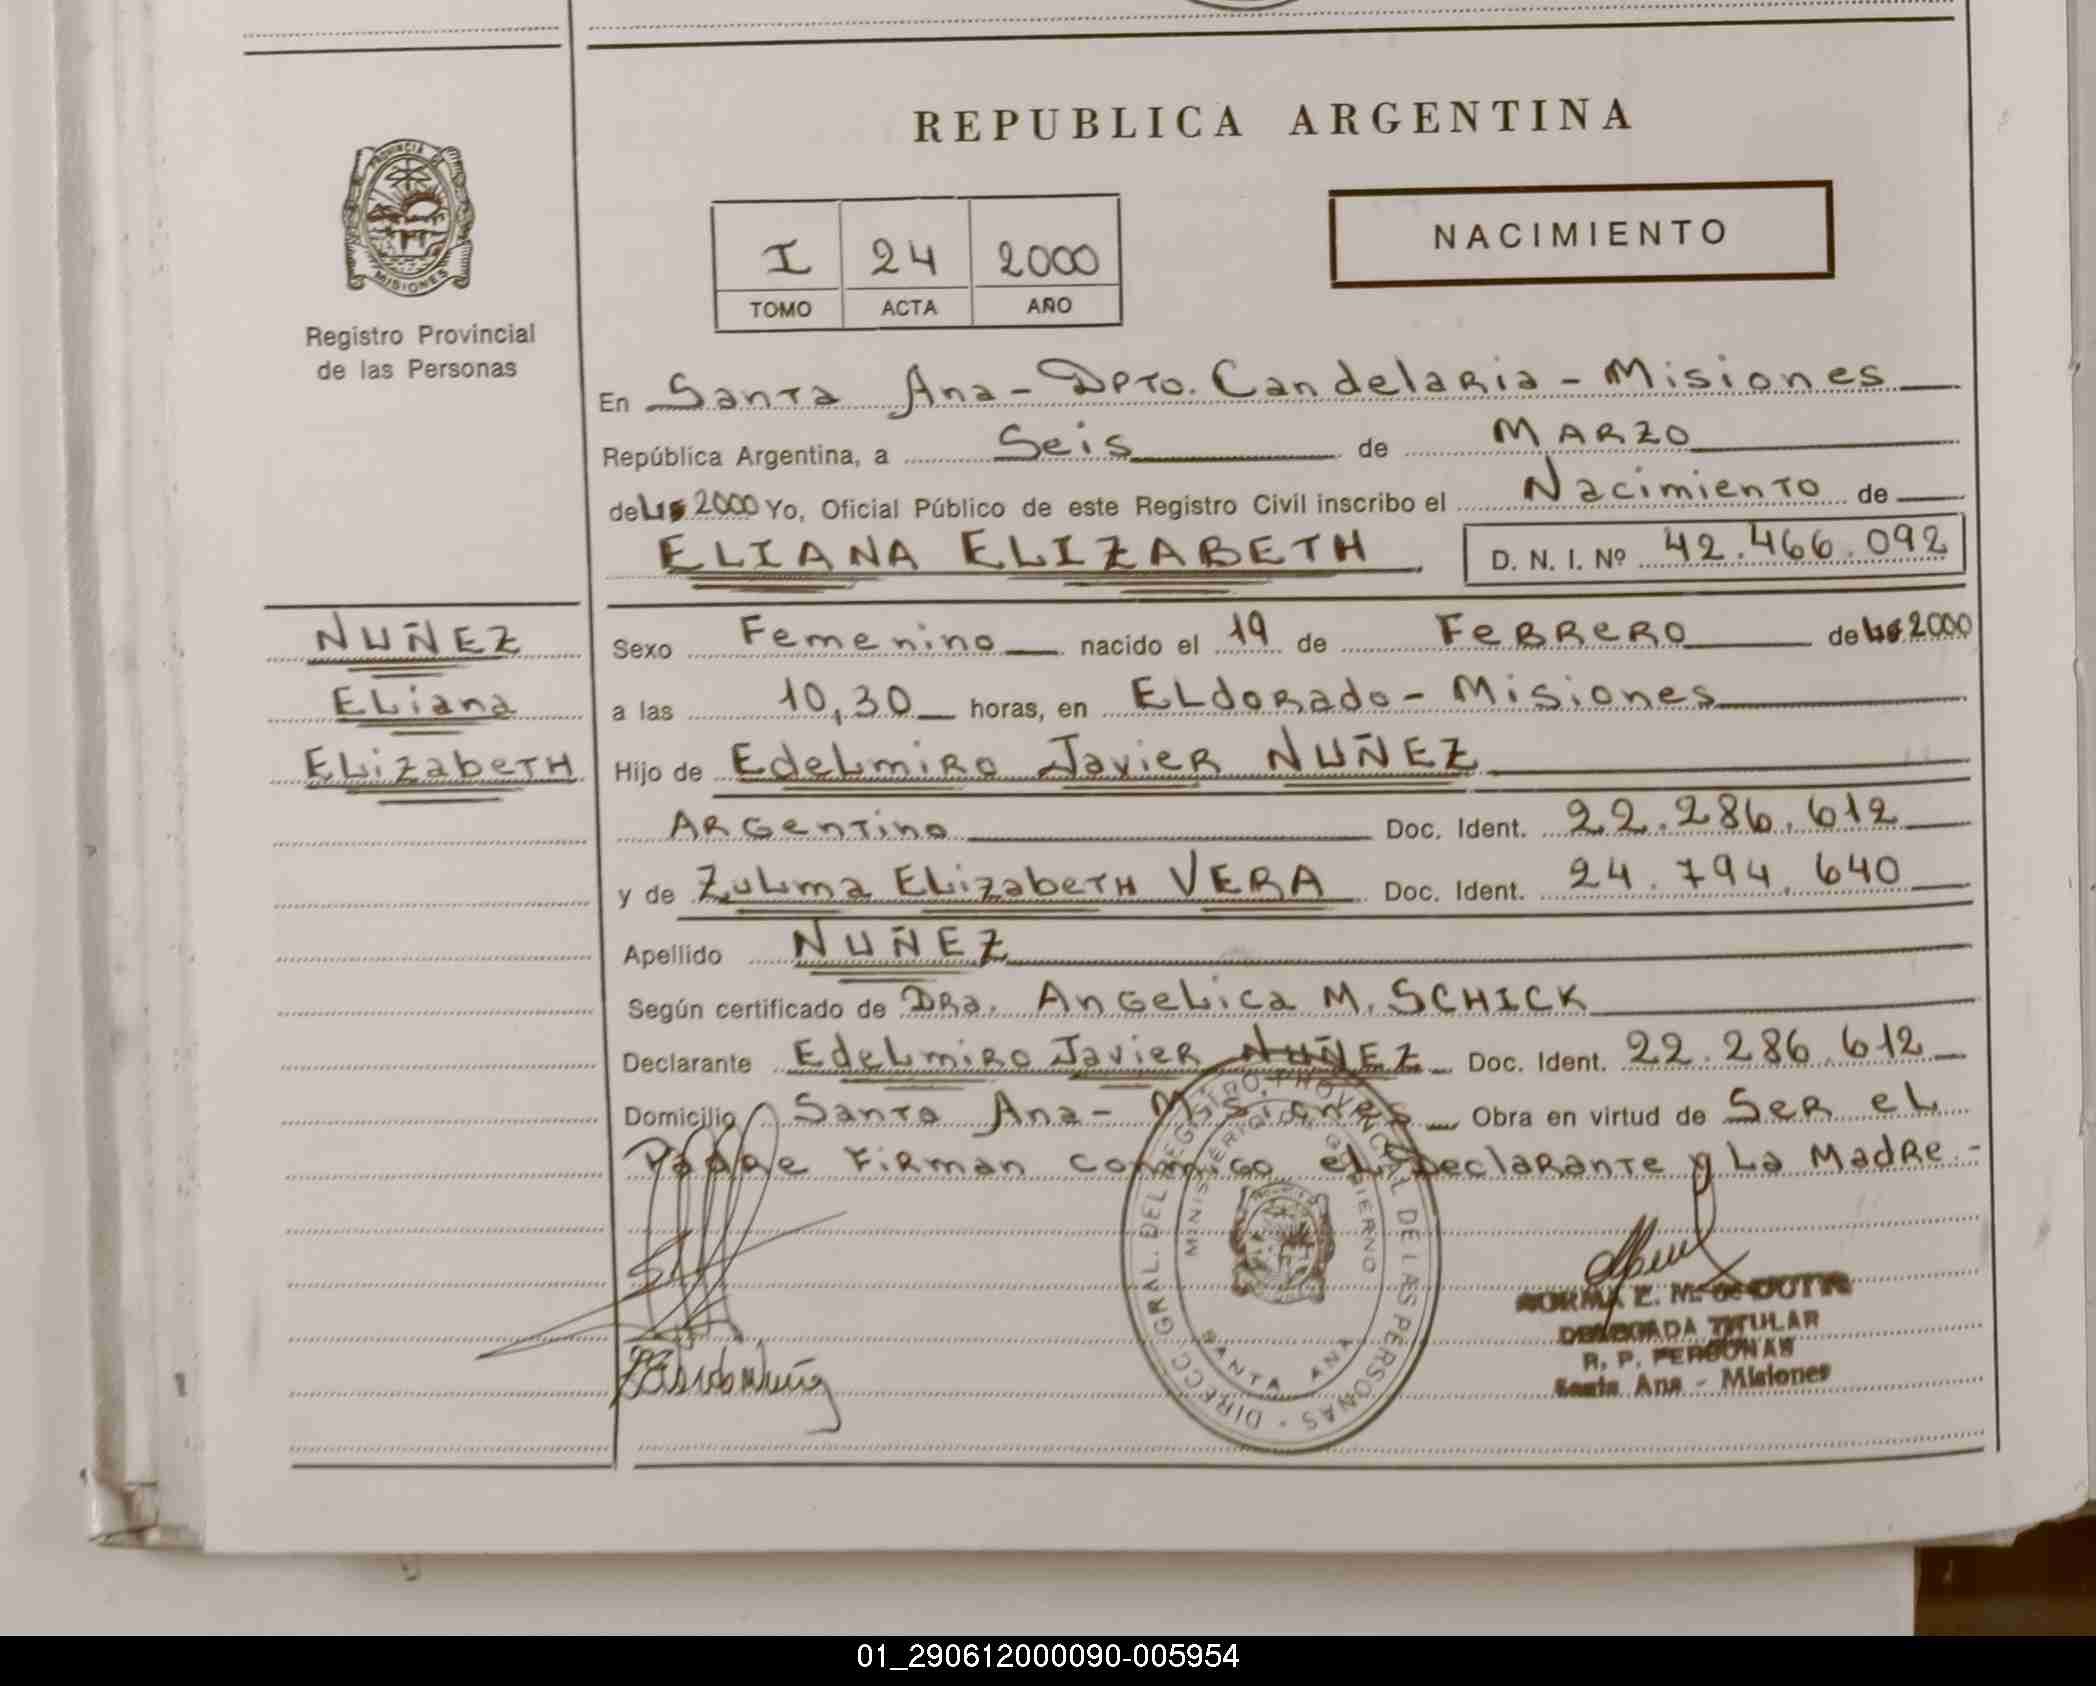 REPUBLICA ARGENTINA
PROVINCIA DE
MISIONES
Registro Provincial
de las Personas
NACIMIENTO
I 24 2000
TOMO ACTA AÑO
En Santa Ana - Dpto. Candelaria - Misiones
República Argentina, a Seis de MARZO
del 2000 Yo, Oficial Público de este Registro Civil inscribo el Nacimiento de
ELIANA ELIZABETH D. N. I. Nº 42.466.092
NUÑEZ
Eliana
Elizabeth
Sexo Femenino nacido el 19 de Febrero del 2000
a las 10,30 horas, en Eldorado - Misiones
Hijo de Edelmiro Javier NUÑEZ
Argentino Doc. Ident. 22.286.612
y de Zulma Elizabeth VERA Doc. Ident. 24.794.640
Apellido NUÑEZ
Según certificado de Dra. Angelica M. SCHICK
Declarante Edelmiro Javier NUÑEZ Doc. Ident. 22.286.612
Domicilio Santa Ana - Misiones Obra en virtud de Ser el
Padre Firman conmigo el Declarante y La Madre.-
DIRECC. GRAL. DEL REGISTRO PROVINCIAL DE LAS PERSONAS
MINISTERIO DE GOBIERNO
SANTA ANA
NORMA E. M. de
DELEGADA TITULAR
R. P. PERSONAS
Santa Ana - Misiones
01_290612000090-005954